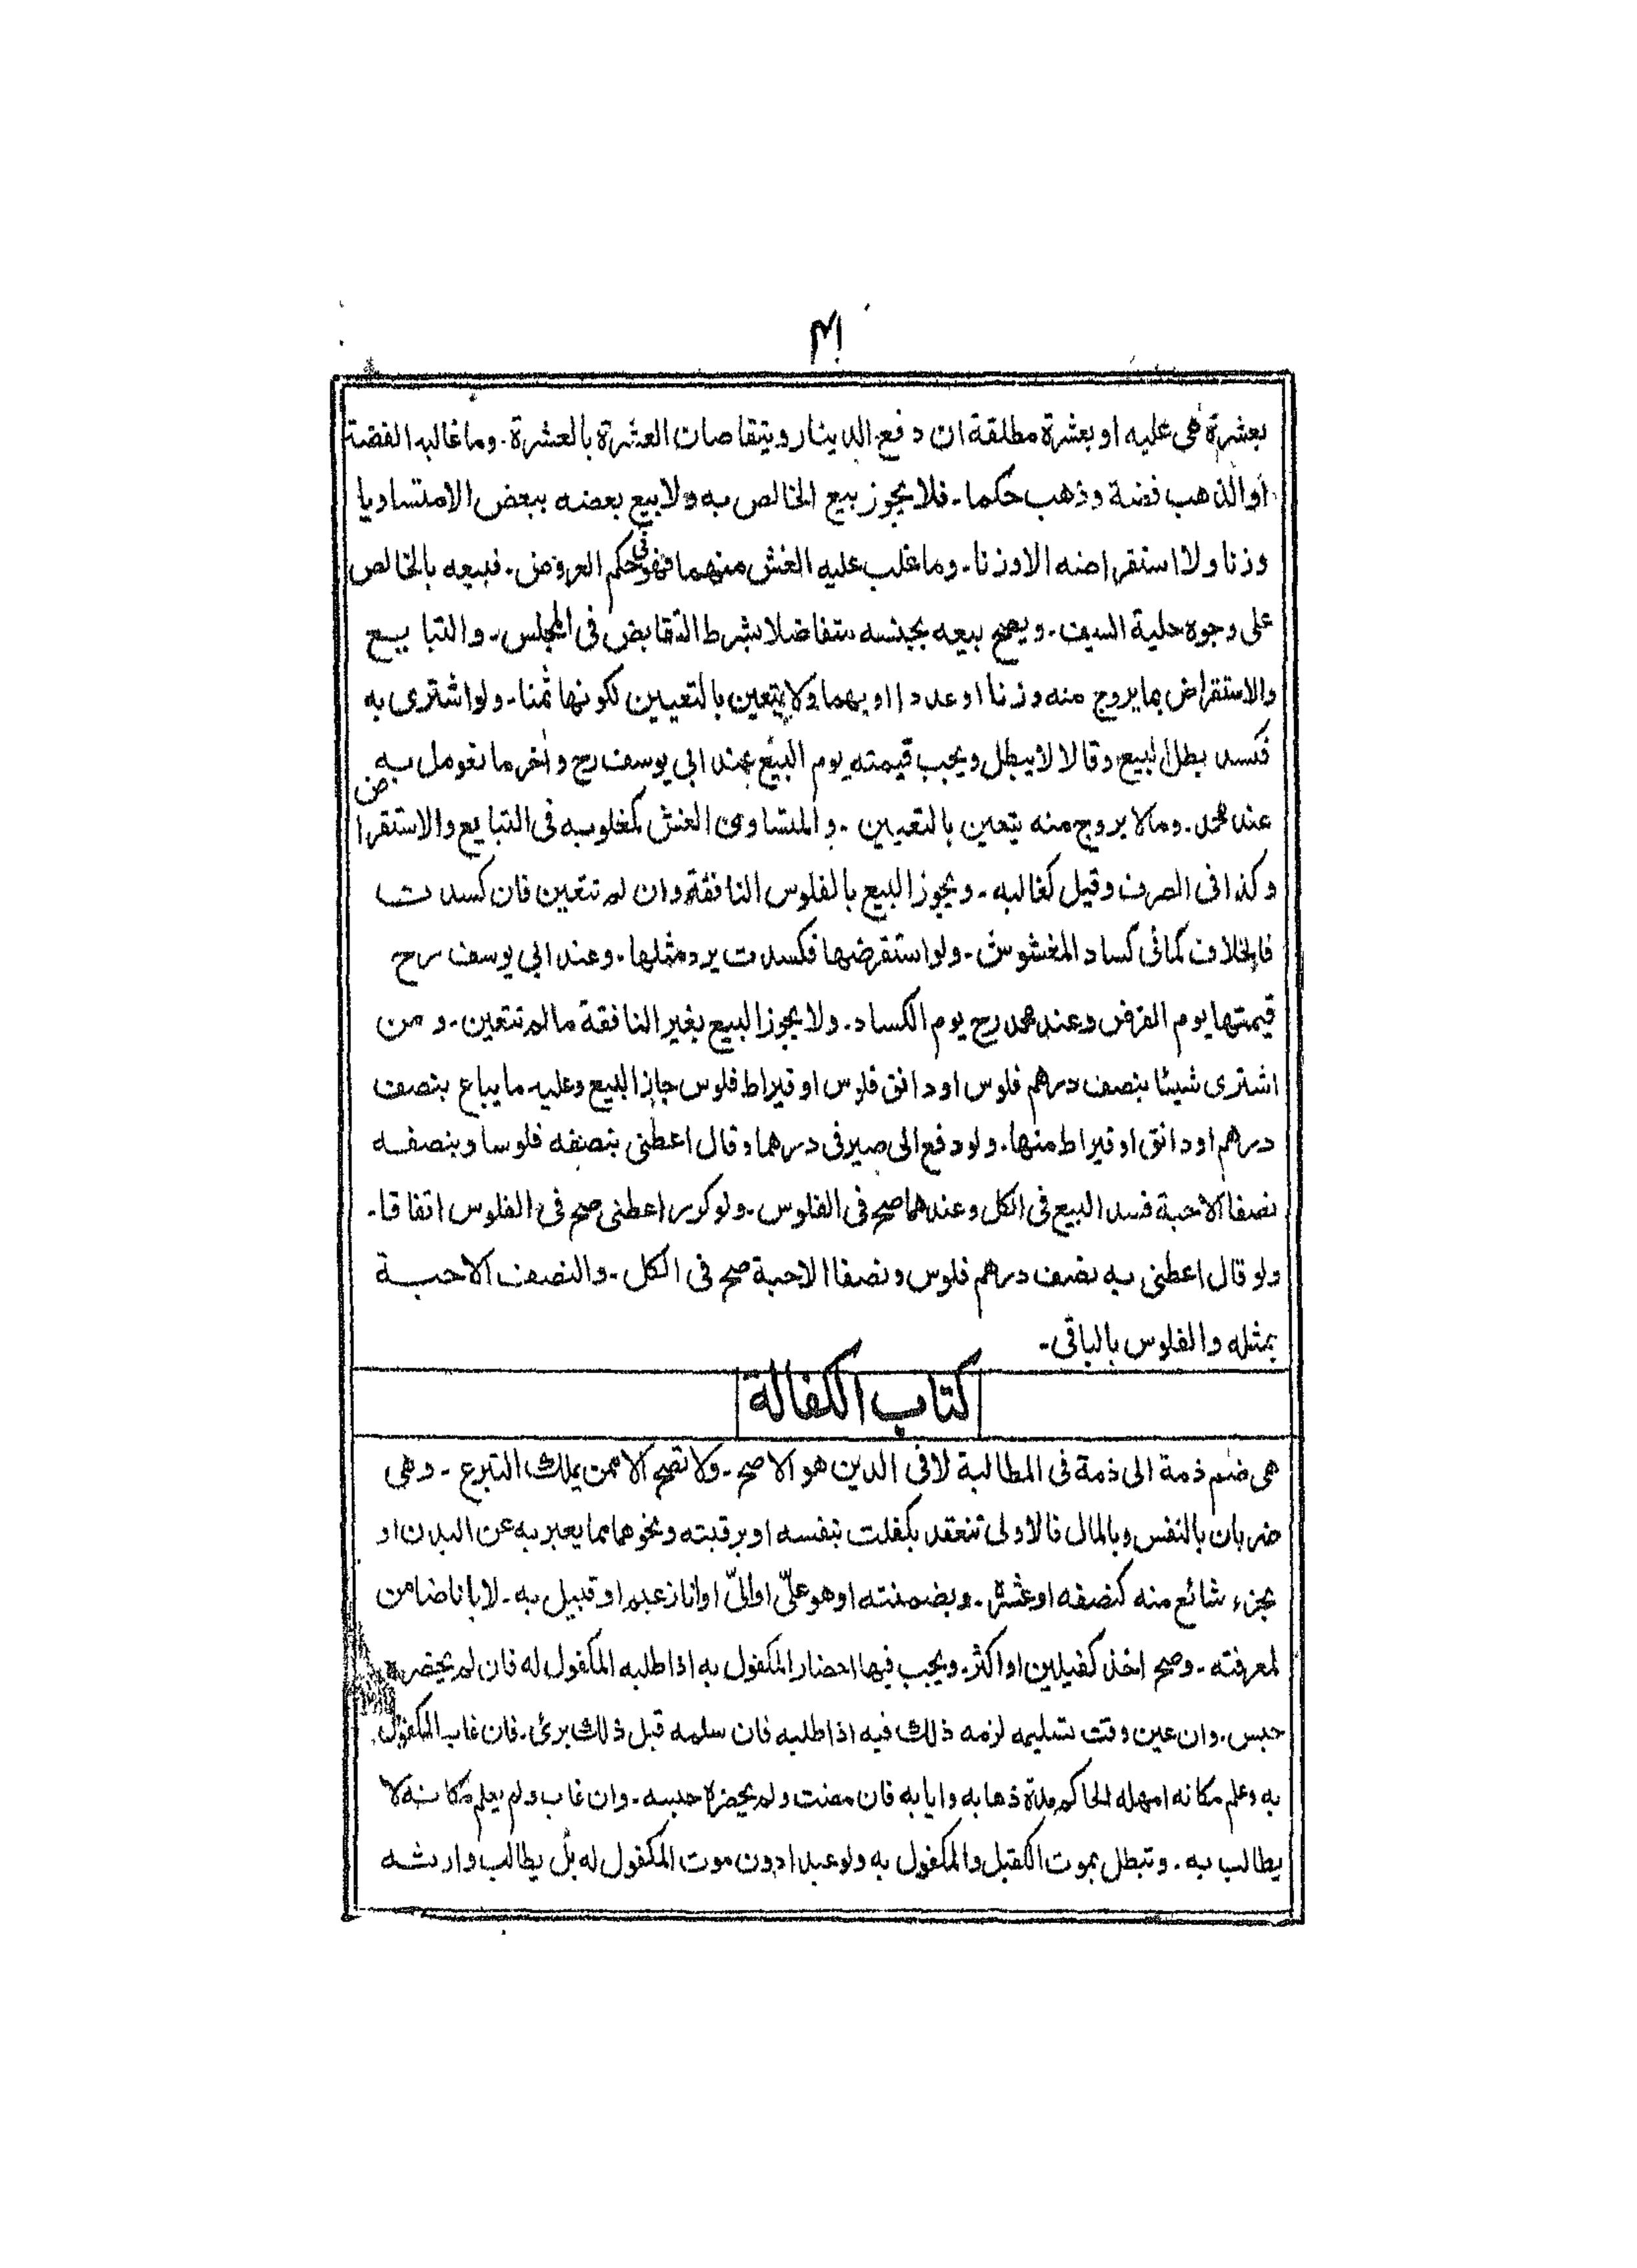 ٣١
بعشرة هى عليه او بعشرة مطلقة ان دفع الدينار ويتقاصان العشرة بالعشرة۔ وما غالبه الفضة
او الذهب فضة وذهب حكما۔ فلا يجوز بيع الخالص به ولا بيع بعضه ببعض الا متساويا
وزنا ولا استقراضه الا وزنا۔ وما غلب عليه الغش منهما فهو فى حكم العروض۔ فبيعه بالخالص
على وجوه حلية السيف۔ ويصح بيعه بجنسه متفاضلا بشرط التقابض فى المجلس۔ والتبايع
والاستقراض بما يروج منه وزنا او عددا او بهما ولا يتعين بالتعيين لكونها ثمنا۔ ولو اشترى به
فكسد بطل البيع وقالا لا يبطل ويجب قيمته يوم البيع عند ابى يوسف رح وآخر ما تعومل به
عند محمد۔ وما لا يروج منه يتعين بالتعيين۔ والمتساوى الغش كمغلوبه فى التبايع والاستقراض
وكذا فى الصرف وقيل كغالبه۔ ويجوز البيع بالفلوس النافقة وان لم تتعين فان كسدت
فالخلاف كما فى كساد المغشوش۔ ولو استقرضها فكسدت يرد مثلها۔ وعند ابى يوسف رح
قيمتها يوم القرض وعند محمد رح يوم الكساد۔ ولا يجوز البيع بغير النافقة ما لم تتعين۔ ومن
اشترى شيئا بنصف درهم فلوس او دانق فلوس او قيراط فلوس جاز البيع وعليه ما يباع بنصف
درهم او دانق او قيراط منها۔ ولو دفع الى صيرفى درهما وقال اعطنى بنصفه فلوسا وبنصفه
نصفا الا حبة فسد البيع فى الكل وعندهما صح فى الفلوس۔ ولو كرر اعطنى صح فى الفلوس اتفاقا۔
ولو قال اعطنى به نصف درهم فلوس ونصفا الا حبة صح فى الكل۔ والنصف الا حبة
بمثله والفلوس بالباقى۔
كتاب الكفالة
هى ضم ذمة الى ذمة فى المطالبة لا فى الدين هو الاصح۔ ولا تصح الا ممن يملك التبرع۔ وهى
ضربان بالنفس وبالمال فالاولى تنعقد بكفلت بنفسه او برقبته ونحوهما مما يعبر به عن البدن او
بجزء شائع منه كنصفه او عشره۔ وبضمنته او هو علىّ او الىّ او انا زعيم او قبيل به۔ لا بانا ضامن
لمعرفته۔ وصح اخذ كفيلين او اكثر۔ ويجب فيها احضار المكفول به اذا طلبه المكفول له فان لم يحضره
حبس۔ وان عين وقت تسليمه لزمه ذلك فيه اذا طلبه فان سلمه قبل ذلك برئ۔ فان غاب المكفول
به وعلم مكانه امهله الحاكم مدة ذهابه وايابه فان مضت ولم يحضره حبسه۔ وان غاب ولم يعلم مكانه لا
يطالب به۔ وتبطل بموت الكفيل والمكفول به ولو عبدا دون موت المكفول له بل يطالب وارثه